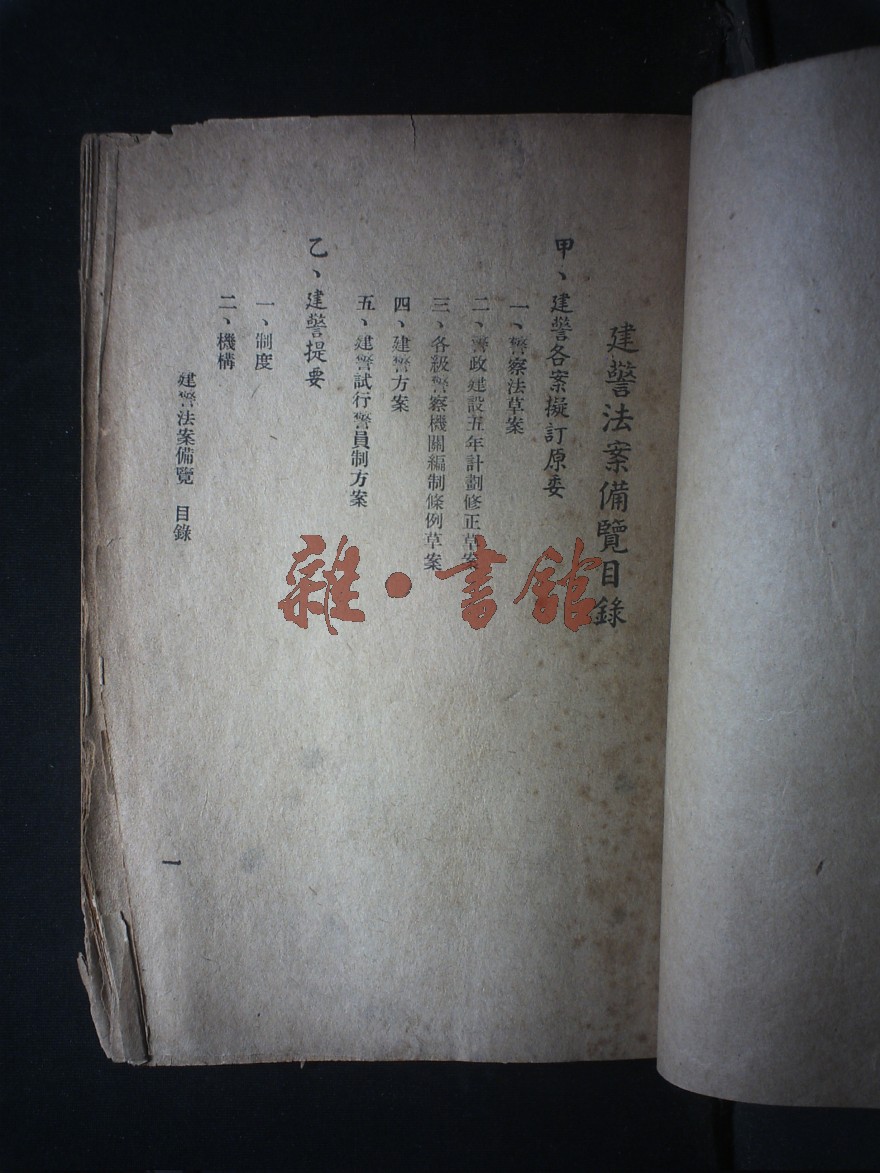 建警法案備覽目錄
甲、建警各案擬訂原委
一、警察法草案
二、警政建設五年計劃修正草案
三、各級警察機關編制條例草案
四、建警方案
五、建警試行警員制方案
乙、建警提要
一、制度
二、機構
建警法案備覽 目錄
一
雜·書館